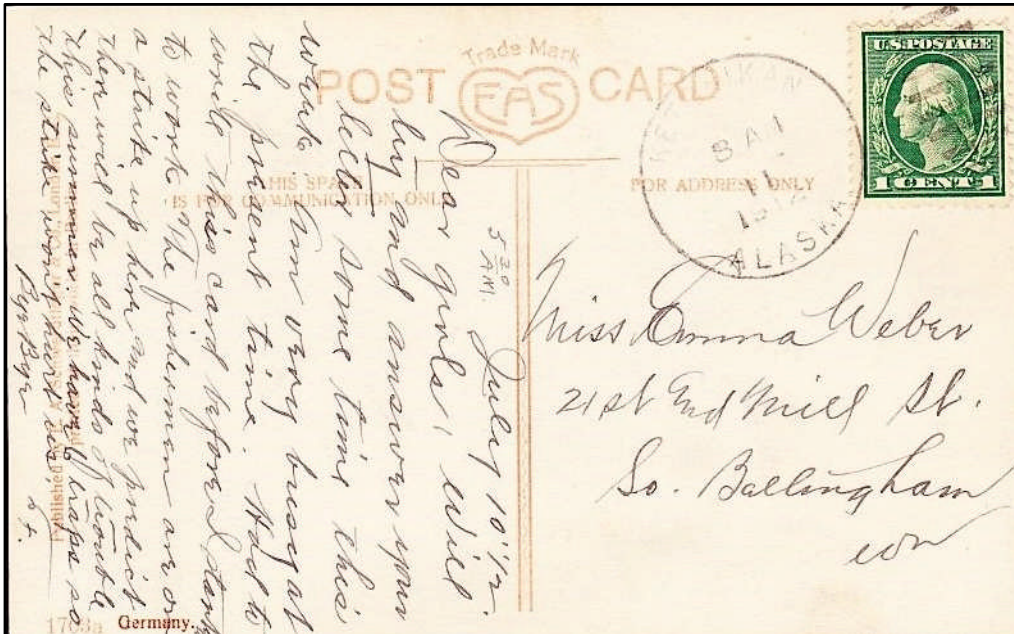 Trade Mark
POST CARD
FAS
THIS SPACE
IS FOR COMMUNICATION ONLY
FOR ADDRESS ONLY
U.S. POSTAGE
1 CENT 1
8 AM
ALASKA
5 30 A.M. July 10
Dear girls, Will
try and answer your
letter some time this
week. Am very busy at
the present time. Had to
write this card before I start
to work. The fisherman are on
a strike up here and we predict
there will be all kinds of trouble
this summer. We have traps so
the strike won't hurt us.
Bye Bye
Miss Emma Weber
21st and Mill St.
So. Bellingham
Published by
1703a Germany.